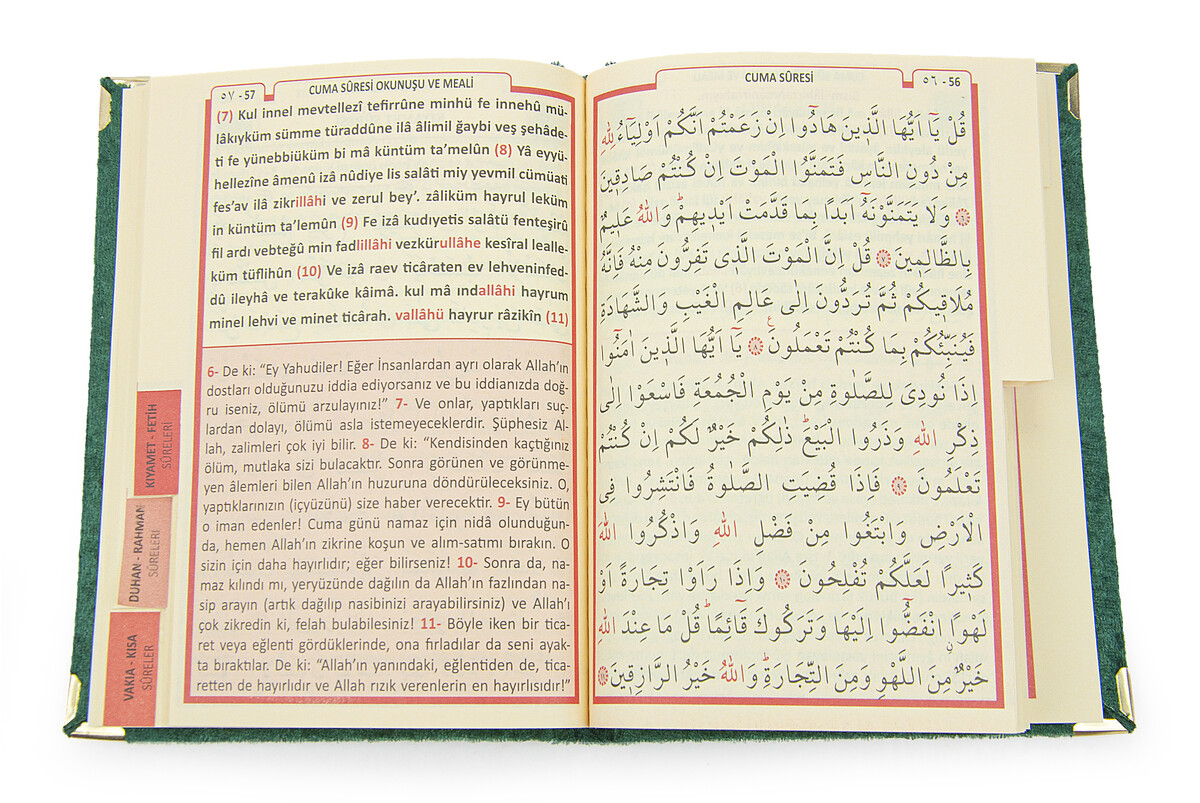 ٥٧ - 57
CUMA SÛRESİ OKUNUŞU VE MEALİ
(7) Kul innel mevtellezî tefirrûne minhü fe innehû mü-
lâkıyküm sümme türaddûne ilâ âlimil ğaybi veş şehâde-
ti fe yünebbiüküm bi mâ küntüm ta’melûn (8) Yâ eyyü-
hellezîne âmenû izâ nûdiye lis salâti miy yevmil cümüati
fes’av ilâ zikrillâhi ve zerul bey’. zâliküm hayrul leküm
in küntüm ta’lemûn (9) Fe izâ kudıyetis salâtü fenteşirû
fil ardı vebteğû min fadlillâhi vezkürullâhe kesîral lealle-
küm tüflihûn (10) Ve izâ raev ticâraten ev lehveninfed-
dû ileyhâ ve terakûke kâimâ. kul mâ ındallâhi hayrum
minel lehvi ve minet ticârah. vallâhü hayrur râzikîn (11)
6- De ki: “Ey Yahudiler! Eğer İnsanlardan ayrı olarak Allah’ın
dostları olduğunuzu iddia ediyorsanız ve bu iddianızda doğ-
ru iseniz, ölümü arzulayınız!” 7- Ve onlar, yaptıkları suç-
lardan dolayı, ölümü asla istemeyeceklerdir. Şüphesiz Al-
lah, zalimleri çok iyi bilir. 8- De ki: “Kendisinden kaçtığınız
ölüm, mutlaka sizi bulacaktır. Sonra görünen ve görünme-
yen âlemleri bilen Allah’ın huzuruna döndürüleceksiniz. O,
yaptıklarınızın (içyüzünü) size haber verecektir. 9- Ey bütün
o iman edenler! Cuma günü namaz için nidâ olunduğun-
da, hemen Allah’ın zikrine koşun ve alım-satımı bırakın. O
sizin için daha hayırlıdır; eğer bilirseniz! 10- Sonra da, na-
maz kılındı mı, yeryüzünde dağılın da Allah’ın fazlından na-
sip arayın (artık dağılıp nasibinizi arayabilirsiniz) ve Allah’ı
çok zikredin ki, felah bulabilesiniz! 11- Böyle iken bir tica-
ret veya eğlenti gördüklerinde, ona fırladılar da seni ayak-
ta bıraktılar. De ki: “Allah’ın yanındaki, eğlentiden de, tica-
retten de hayırlıdır ve Allah rızık verenlerin en hayırlısıdır!”
KIYAMET - FETİH
SÛRELERİ
DUHAN - RAHMAN
SÛRELERİ
VAKIA - KISA
SÛRELER
CUMA SÛRESİ
٥٦ - 56
قُلْ يَٓا اَيُّهَا الَّذ۪ينَ هَادُٓوا اِنْ زَعَمْتُمْ اَنَّكُمْ اَوْلِيَٓاءُ لِلّٰهِ
مِنْ دُونِ النَّاسِ فَتَمَنَّوُا الْمَوْتَ اِنْ كُنْتُمْ صَادِق۪ينَ
﴿٦﴾ وَلَا يَتَمَنَّوْنَهُٓ اَبَدًا بِمَا قَدَّمَتْ اَيْد۪يهِمْۜ وَاللّٰهُ عَل۪يمٌ
بِالظَّالِم۪ينَ ﴿٧﴾ قُلْ اِنَّ الْمَوْتَ الَّذ۪ي تَفِرُّونَ مِنْهُ فَاِنَّهُ
مُلَاق۪يكُمْ ثُمَّ تُرَدُّونَ اِلٰى عَالِمِ الْغَيْبِ وَالشَّهَادَةِ
فَيُنَبِّئُكُمْ بِمَا كُنْتُمْ تَعْمَلُونَ ع ﴿٨﴾ يَٓا اَيُّهَا الَّذ۪ينَ اٰمَنُٓوا
اِذَا نُودِيَ لِلصَّلٰوةِ مِنْ يَوْمِ الْجُمُعَةِ فَاسْعَوْا اِلٰى
ذِكْرِ اللّٰهِ وَذَرُوا الْبَيْعَۜ ذٰلِكُمْ خَيْرٌ لَكُمْ اِنْ كُنْتُمْ
تَعْلَمُونَ ﴿٩﴾ فَاِذَا قُضِيَتِ الصَّلٰوةُ فَانْتَشِرُوا فِي
الْاَرْضِ وَابْتَغُوا مِنْ فَضْلِ اللّٰهِ وَاذْكُرُوا اللّٰهَ
كَث۪يرًا لَعَلَّكُمْ تُفْلِحُونَ ﴿١٠﴾ وَاِذَا رَاَوْا تِجَارَةً اَوْ
لَهْوًاۨ انْفَضُّٓوا اِلَيْهَا وَتَرَكُوكَ قَٓائِمًاۜ قُلْ مَا عِنْدَ اللّٰهِ
خَيْرٌ مِنَ اللَّهْوِ وَمِنَ التِّجَارَةِۜ وَاللّٰهُ خَيْرُ الرَّازِق۪ينَ ﴿١١﴾